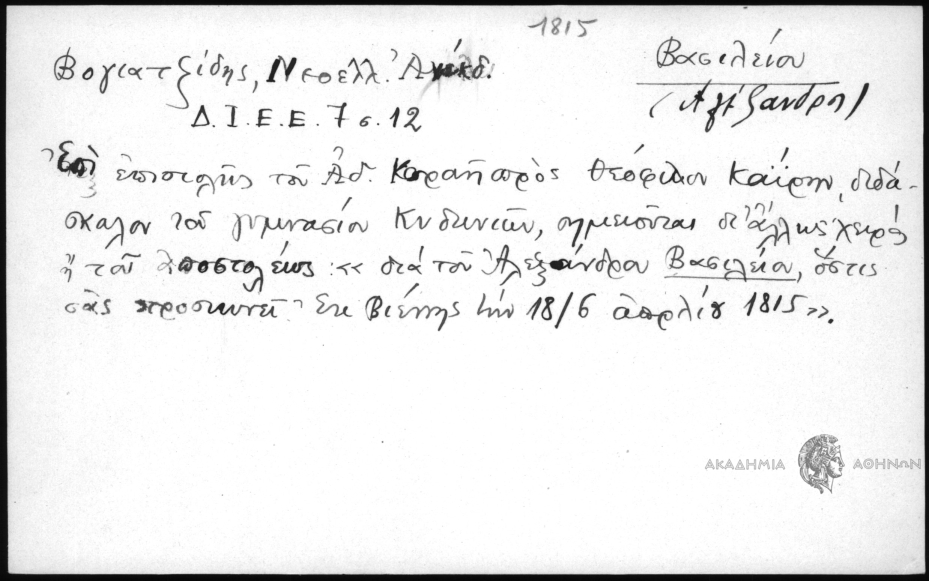 1815
Βογιατζίδης, Νεοελλ. Ἀνέκδ.
Βασιλείου
(Ἀλέξανδρος)
Δ.Ι.Ε.Ε. 7 σ. 12
Ἐπὶ ἐπιστολῆς τοῦ Ἀδ. Κοραῆ πρὸς Θεόφιλον Καΐρην, διδά-
σκαλον τοῦ γυμνασίου Κυδωνιῶν, σημειοῦται δι' ἄλλης χειρός
ἢ τοῦ ἀποστολέως: «διὰ τοῦ Ἀλεξάνδρου Βασιλείου, ὅστις
σᾶς προσκυνεῖ. Ἐκ Βιέννης τὴν 18/6 ἀπριλίου 1815».
ΑΚΑΔΗΜΙΑ ΑΘΗΝΩΝ